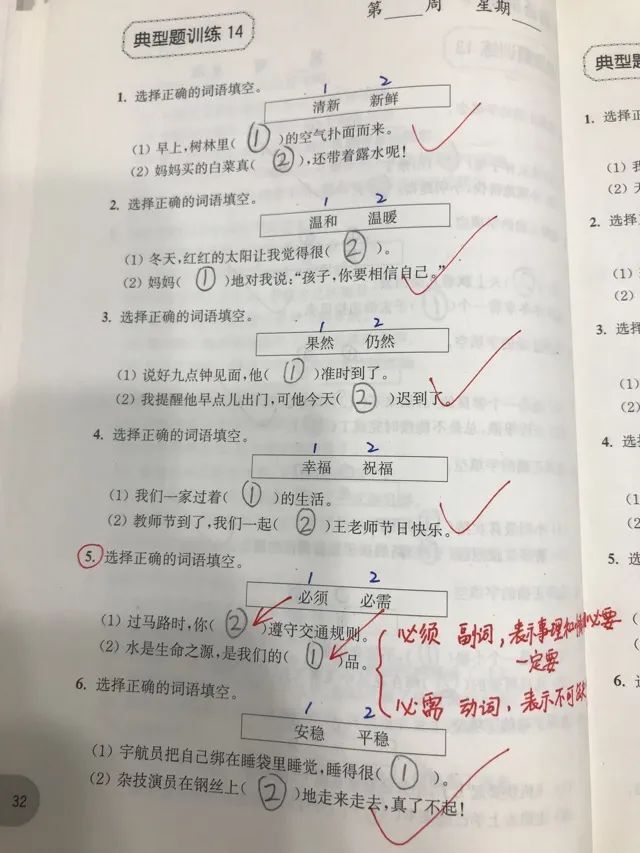 第____周 星期____
典型题训练 14
1. 选择正确的词语填空。
1 2
清新 新鲜
(1) 早上,树林里( ① )的空气扑面而来。
(2) 妈妈买的白菜真( ② ),还带着露水呢!
2. 选择正确的词语填空。
1 2
温和 温暖
(1) 冬天,红红的太阳让我觉得很( ② )。
(2) 妈妈( ① )地对我说:“孩子,你要相信自己。”
3. 选择正确的词语填空。
1 2
果然 仍然
(1) 说好九点钟见面,他( ① )准时到了。
(2) 我提醒他早点儿出门,可他今天( ② )迟到了。
4. 选择正确的词语填空。
1 2
幸福 祝福
(1) 我们一家过着( ① )的生活。
(2) 教师节到了,我们一起( ② )王老师节日快乐。
5. 选择正确的词语填空。
1 2
必须 必需
(1) 过马路时,你( ② )遵守交通规则。
(2) 水是生命之源,是我们的( ① )品。
必须 副词,表示事理和 必要
一定要
必需 动词,表示不可
6. 选择正确的词语填空。
1 2
安稳 平稳
(1) 宇航员把自己绑在睡袋里睡觉,睡得很( ① )。
(2) 杂技演员在钢丝上( ② )地走来走去,真了不起!
32
典型题
1. 选择
(1)
(2)
2. 选择
(1)
(2)
3. 选
(1)
(2)
4.
(1)
(2)
5.
6.